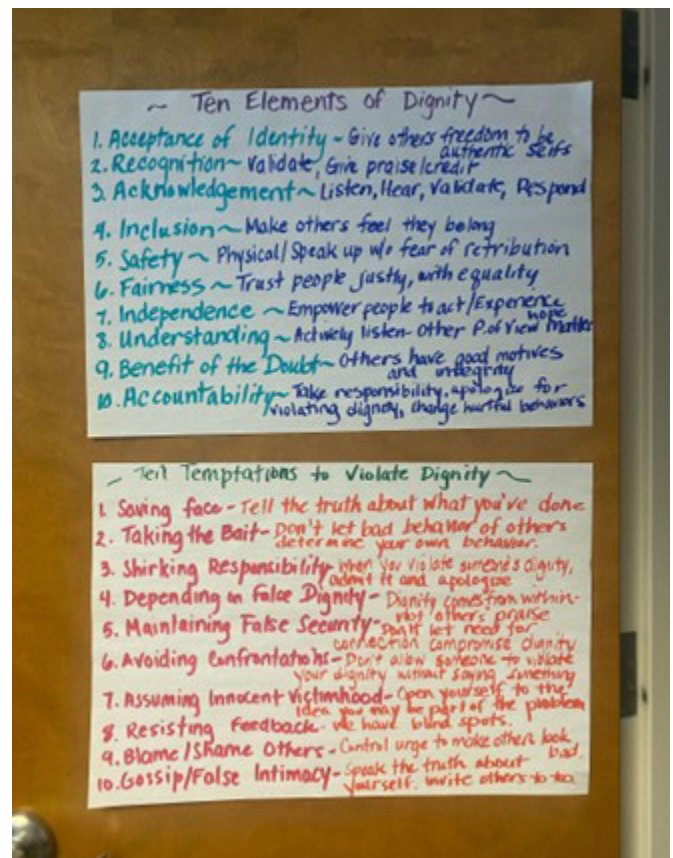 ~ Ten Elements of Dignity ~
1. Acceptance of Identity ~ Give others freedom to be
authentic selfs
2. Recognition ~ Validate, Give praise/credit
3. Acknowledgement ~ Listen, Hear, Validate, Respond
4. Inclusion ~ Make others feel they belong
5. Safety ~ Physical/Speak up w/o fear of retribution
6. Fairness ~ Trust people justly, with equality
7. Independence ~ Empower people to act/Experience
hope
8. Understanding ~ Actively listen - Other P.of View matter
9. Benefit of the Doubt ~ Others have good motives
and integrity
10. Accountability ~ Take responsibility, apologize for
violating dignity, change hurtful behaviors
~ Ten Temptations to Violate Dignity ~
1. Saving face - Tell the truth about what you've done
2. Taking the Bait - Don't let bad behavior of others
determine your own behavior.
3. Shirking Responsibility - When you violate someone's dignity,
admit it and apologize
4. Depending on False Dignity - Dignity comes from within -
not others' praise
5. Maintaining False Security - Don't let need for
connection compromise dignity
6. Avoiding Confrontations - Don't allow someone to violate
your dignity without saying something
7. Assuming Innocent Victimhood - Open yourself to the
idea you may be part of the problem
8. Resisting Feedback - We have blind spots.
9. Blame/Shame Others - Control urge to make others look
bad.
10. Gossip/False Intimacy - Speak the truth about
yourself. invite others to